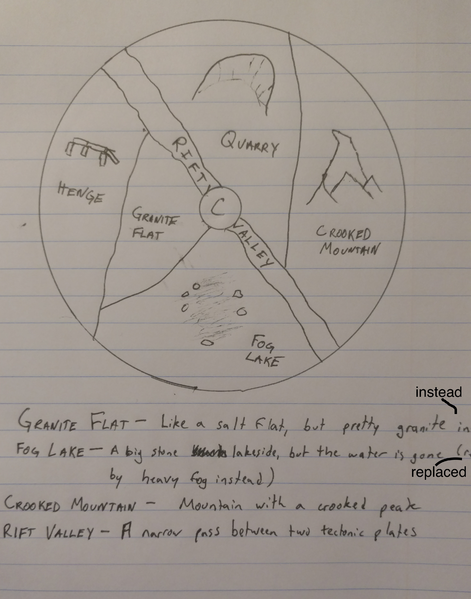 QUARRY
RIFT
VALLEY
C
HENGE
GRANITE
FLAT
CROOKED
MOUNTAIN
FOG
LAKE
instead
GRANITE FLAT - Like a salt flat, but pretty granite in
FOG LAKE - A big stone lakeside, but the water is gone (r
replaced
by heavy fog instead)
CROOKED MOUNTAIN - Mountain with a crooked peak
RIFT VALLEY - A narrow pass between two tectonic plates